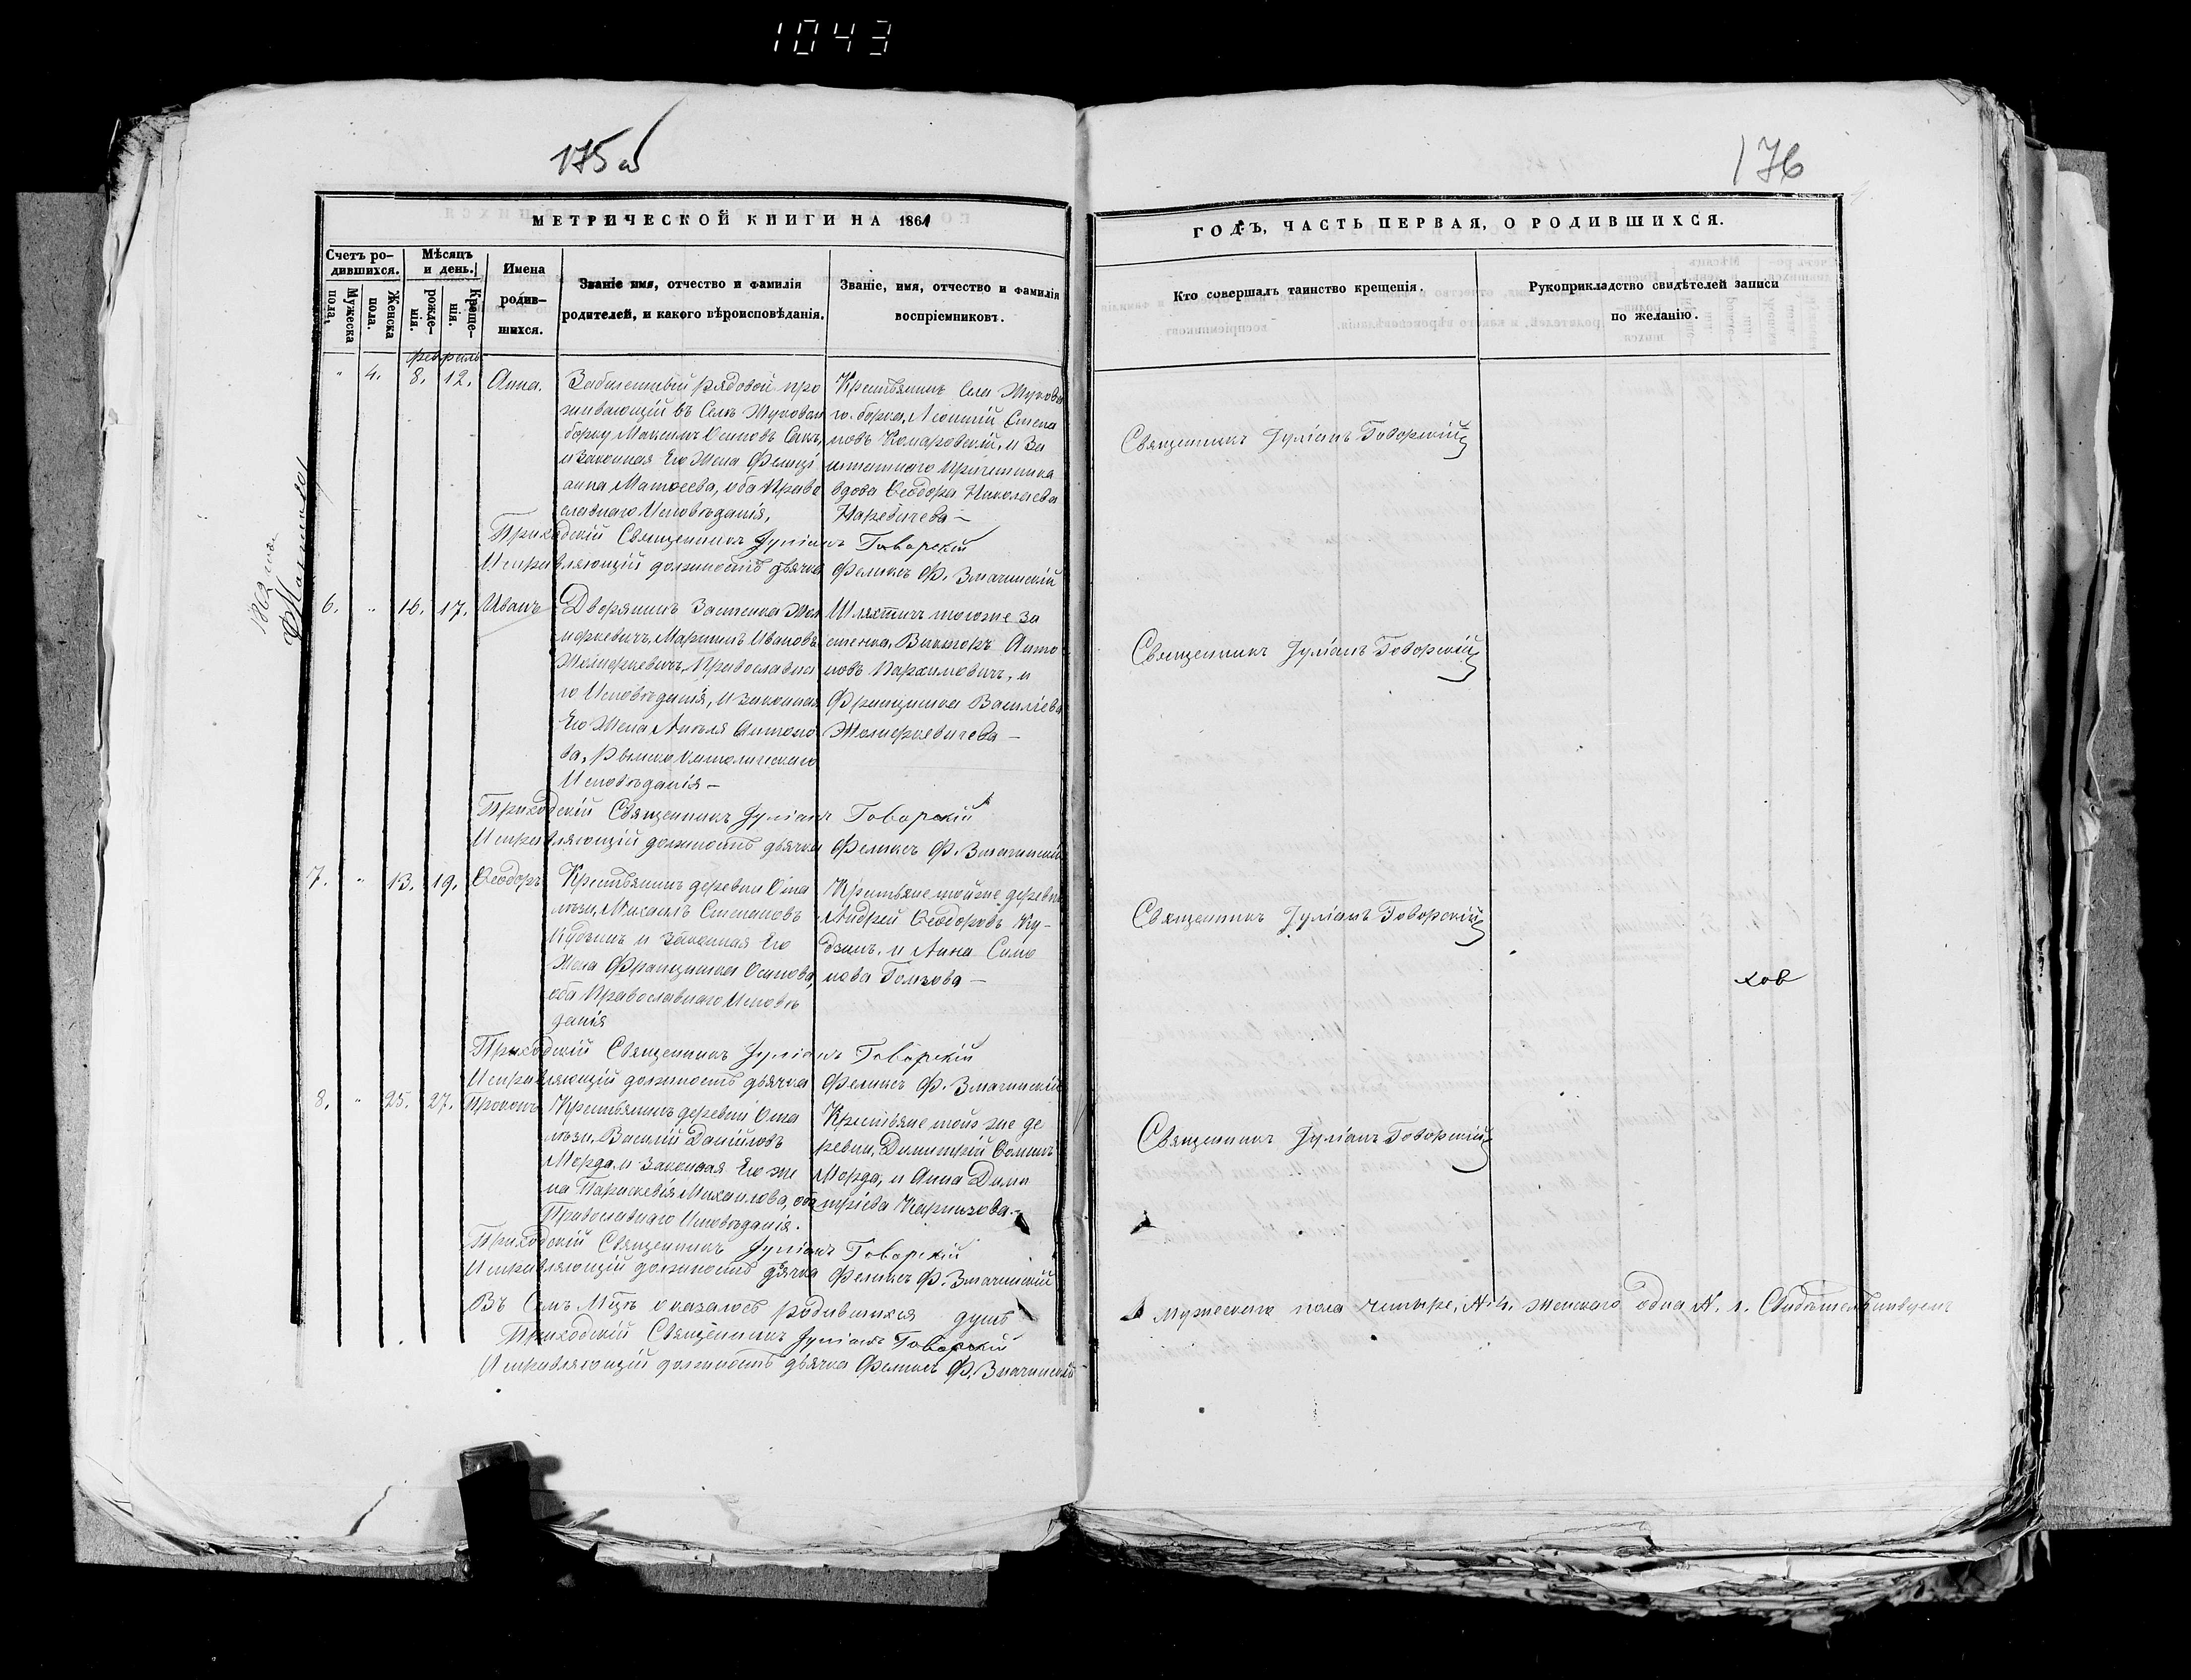 1043
175 об
176
МЕТРИЧЕСКОЙ КНИГИ НА 1861
ГОДЪ, ЧАСТЬ ПЕРВАЯ, О РОДИВШИХСЯ.
Счетъ ро-
дившихся.
Мужеска
пола.
Женска
пола.
Мѣсяцъ
и день.
рожде-
нія.
Креще-
нія.
Имена
родив-
шихся.
Званіе имя, отчество и фамилія
родителей, и какого вѣроисповѣданія.
Званіе, имя, отчество и фамилія
воспріемниковъ.
Кто совершалъ таинство крещенія.
Рукоприкладство свидѣтелей записи
по желанію.
февраль
" 4. 8. 12. Анна.
рядовой про
живающій въ Селѣ Жуковом
борку Максимъ Осиповъ
и законная Его Жена Фелици
анна Матѳеева, оба Право
славнаго Исповѣданія,
Крестьянинъ Села Жуково
го-борка, Леонтій Степа
новъ Комаровскій, и За
штатнаго Причетника
вдова Ѳеодора Николаева
Наревичева —
Священникъ Іуліанъ Говорскій
Приходскій Священникъ Іуліанъ Говорскій
Исправляющій должность дьячка Феликсъ Ф. Змачинскій
6. " 16. 17. Иванъ
Дворянинъ Застенка Жол
неркевичъ, Мартинъ Ивановъ
Жолнеркевичъ, Православна
го Исповѣданія, и законная
Его Жена Анеля Антоно
ва, Римско Католическаго
Исповѣданія —
Шляхтичъ тогоже За
стенка, Викторъ Анто
новъ Пархимовичъ, и
Францишка Василіева
Жолнеркевичева —
Священникъ Іуліанъ Говорскій
Приходскій Священникъ Іуліанъ Говорскій
Исправляющій должность дьячка Феликсъ Ф. Змачинскій
7. " 13. 19. Ѳеодоръ
Крестьянинъ деревни
Михаилъ Степановъ
Кудзинъ и законная Его
Жена Францишка Осипова,
оба Православнаго Исповѣ
данія
Крестьяне тойже деревни
Андрей Ѳеодоровъ Ку-
дзинъ, и Анна Симо
нова —
Священникъ Іуліанъ Говорскій
Приходскій Священникъ Іуліанъ Говорскій
Исправляющій должность дьячка Феликсъ Ф. Змачинскій
8. " 25. 27. Прокопъ
Крестьянинъ деревни
Василій Даніиловъ
Морда, и законная Его же
на Параскевія Михаилова, оба
Православнаго Исповѣданія.
Крестьяне той же де
ревни, Димитрій Ѳоминъ
Морда, и Анна Дими
тріева
Священникъ Іуліанъ Говорскій
Приходскій Священникъ Іуліанъ Говорскій
Исправляющій должность дьячка Феликсъ Ф. Змачинскій
Въ Семъ Мцѣ оказалось родившихся душъ
мужескаго пола четыре, №4. женскаго одна №. 1. Свидѣтельствуемъ
Приходскій Священникъ Іуліанъ Говорскій
Исправляющій должность дьячка Феликсъ Ф. Змачинскій